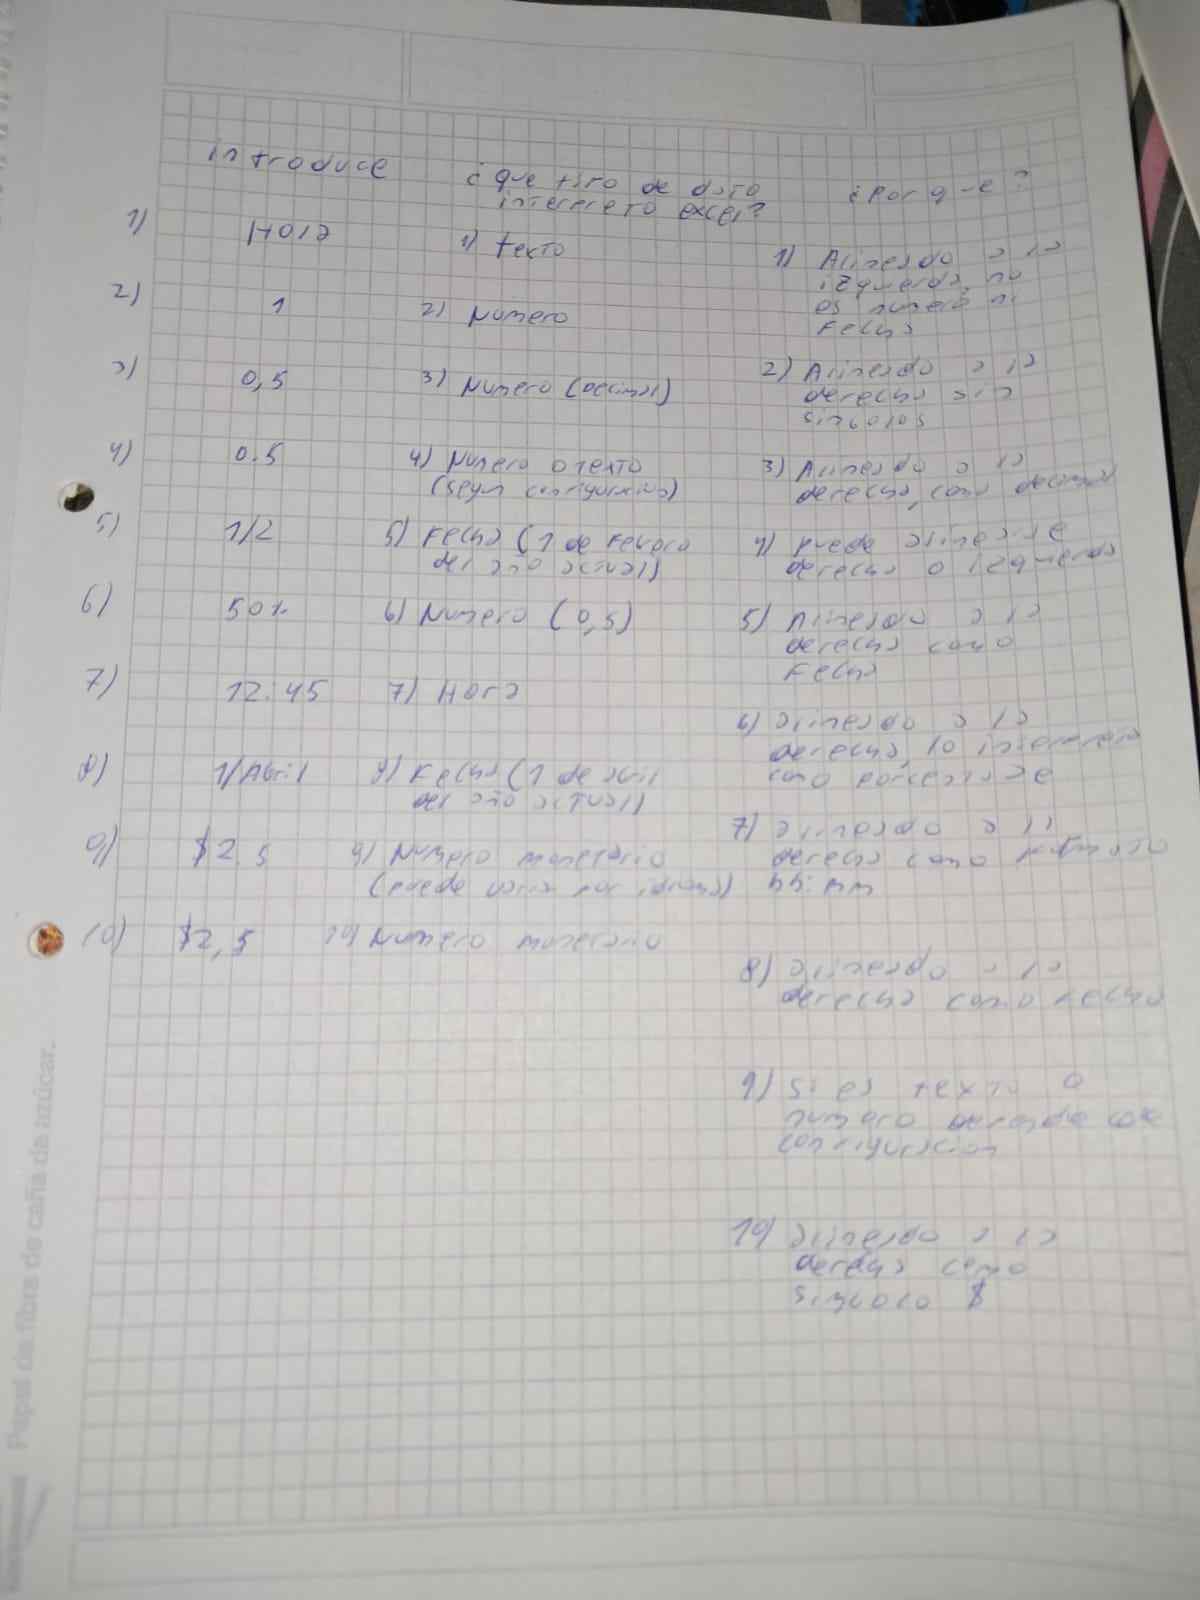 introduce
¿que tipo de dato
interpreto excel?
¿Por que?
1) Hola
1) texto
1) Alineado a la
izquerda, no
es numero ni
Fecha
2) 1
2) Numero
2) Alineado a la
derecha sin
simbolos
3) 0,5
3) Numero (decimal)
3) Alineado a la
derecha, como decimal
4) 0.5
4) Numero o texto
(segun configuracion)
4) puede alinearse
derecha o izquierda
5) 1/2
5) Fecha (1 de Febrero
del año actual)
5) Alineado a la
derecha como
Fecha
6) 50%
6) Numero (0,5)
6) alineado a la
derecha, lo interpreta
como porcentaje
7) 12:45
7) Hora
7) alineado a la
derecha como
hh:mm
8) 1/Abril
8) Fecha (1 de abril
del año actual)
8) alineado a la
derecha como fecha
9) $2.5
9) Numero monetario
(puede variar por idioma)
9) Si es texto o
numero depende de
configuracion
10) $2,5
10) Numero monetario
10) alineado a la
derecha como
simbolo $
Papel de fibra de caña de azúcar.